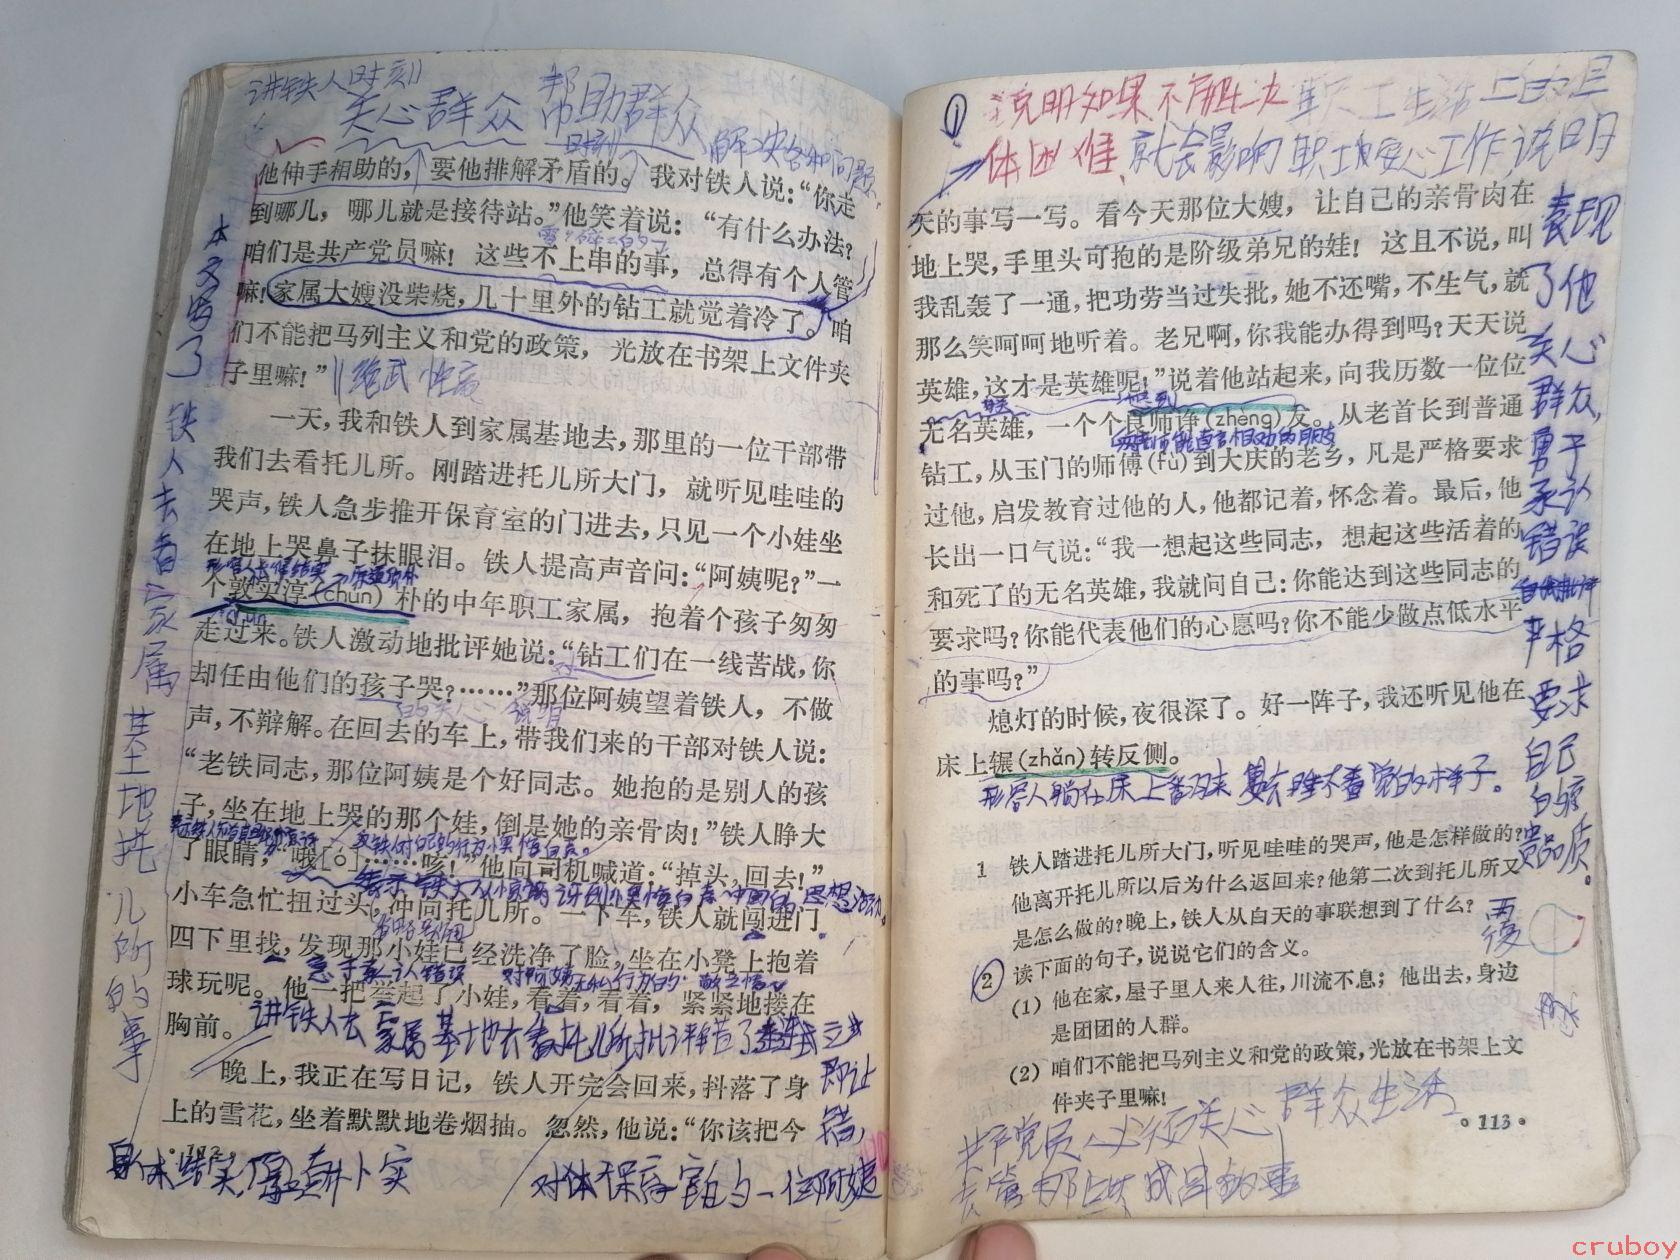 讲铁人时刻
关心群众 帮助群众
时刻
解决各种问题
他伸手相助的，要他排解矛盾的。我对铁人说：“你走
到哪儿，哪儿就是接待站。”他笑着说：“有什么办法？
咱们是共产党员嘛！这些不上串的事，总得有个人管
嘛！家属大嫂没柴烧，几十里外的钻工就觉着冷了。咱
们不能把马列主义和党的政策，光放在书架上文件夹
子里嘛！”
一天，我和铁人到家属基地去，那里的一位干部带
我们去看托儿所。刚踏进托儿所大门，就听见哇哇的
哭声，铁人急步推开保育室的门进去，只见一个小娃坐
在地上哭鼻子抹眼泪。铁人提高声音问：“阿姨呢？”一
个敦实淳(chún)朴的中年职工家属，抱着个孩子匆匆
走过来。铁人激动地批评她说：“钻工们在一线苦战，你
却任由他们的孩子哭？……”那位阿姨望着铁人，不做
声，不辩解。在回去的车上，带我们来的干部对铁人说：
“老铁同志，那位阿姨是个好同志。她抱的是别人的孩
子，坐在地上哭的那个娃，倒是她的亲骨肉！”铁人睁大
了眼睛，“哦[ó]……咳！”他向司机喊道：“掉头，回去！”
小车急忙扭过头，冲向托儿所。一下车，铁人就闯进门
四下里找，发现那小娃已经洗净了脸，坐在小凳上抱着
球玩呢。他一把举起了小娃，看着，看着，紧紧地搂在
胸前。
讲铁人去家属基地去看托儿所批评苦了
晚上，我正在写日记，铁人开完会回来，抖落了身
上的雪花，坐着默默地卷烟抽。忽然，他说：“你该把今
·112·
身体结实，厚直朴实
对体保育 与一位阿姨
本文写了 铁人去看家属基地托儿所的事
① 说明如果不解决职工生活上的具
体困难，就会影响职工安心工作，说明
天的事写一写。看今天那位大嫂，让自己的亲骨肉在
地上哭，手里头可抱的是阶级弟兄的娃！这且不说，叫
我乱轰了一通，把功劳当过失批，她不还嘴，不生气，就
那么笑呵呵地听着。老兄啊，你我能办得到吗？天天说
英雄，这才是英雄呢！”说着他站起来，向我历数一位位
无名英雄，一个个良师诤(zhèng)友。从老首长到普通
钻工，从玉门的师傅(fù)到大庆的老乡，凡是严格要求
过他，启发教育过他的人，他都记着，怀念着。最后，他
长出一口气说：“我一想起这些同志，想起这些活着的
和死了的无名英雄，我就问自己：你能达到这些同志的
要求吗？你能代表他们的心愿吗？你不能少做点低水平
的事吗？”
熄灯的时候，夜很深了。好一阵子，我还听见他在
床上辗(zhǎn)转反侧。
形容人躺在床上翻来复去睡不着觉的样子。
1 铁人踏进托儿所大门，听见哇哇的哭声，他是怎样做的？
他离开托儿所以后为什么返回来？他第二次到托儿所又
是怎么做的？晚上，铁人从白天的事联想到了什么？
2 读下面的句子，说说它们的含义。
(1) 他在家，屋子里人来人往，川流不息；他出去，身边
是团团的人群。
(2) 咱们不能把马列主义和党的政策，光放在书架上文
件夹子里嘛！
·113·
共产党员必须关心群众生活
表现了他关心群众，勇于承认错误
自我批评
严格要求自己的高贵品质。
覆
cruboy